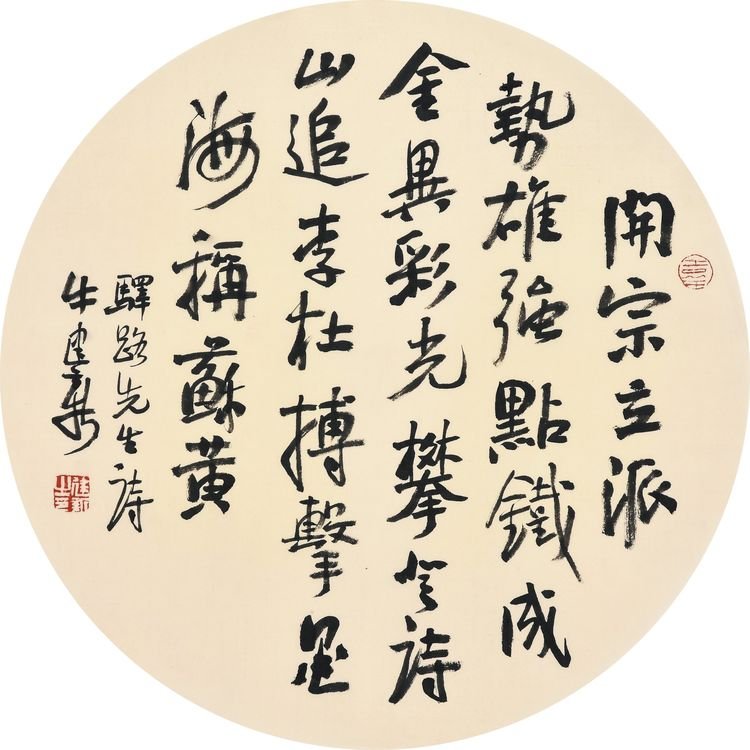 開宗立派
勢雄強點鐵成
金異彩光攀登詩
山追李杜搏擊墨
海稱蘇黃
驛路先生詩
牛建新